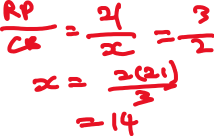 RP/CB = 21/x = 3/2
x = 2(21)/3
= 14